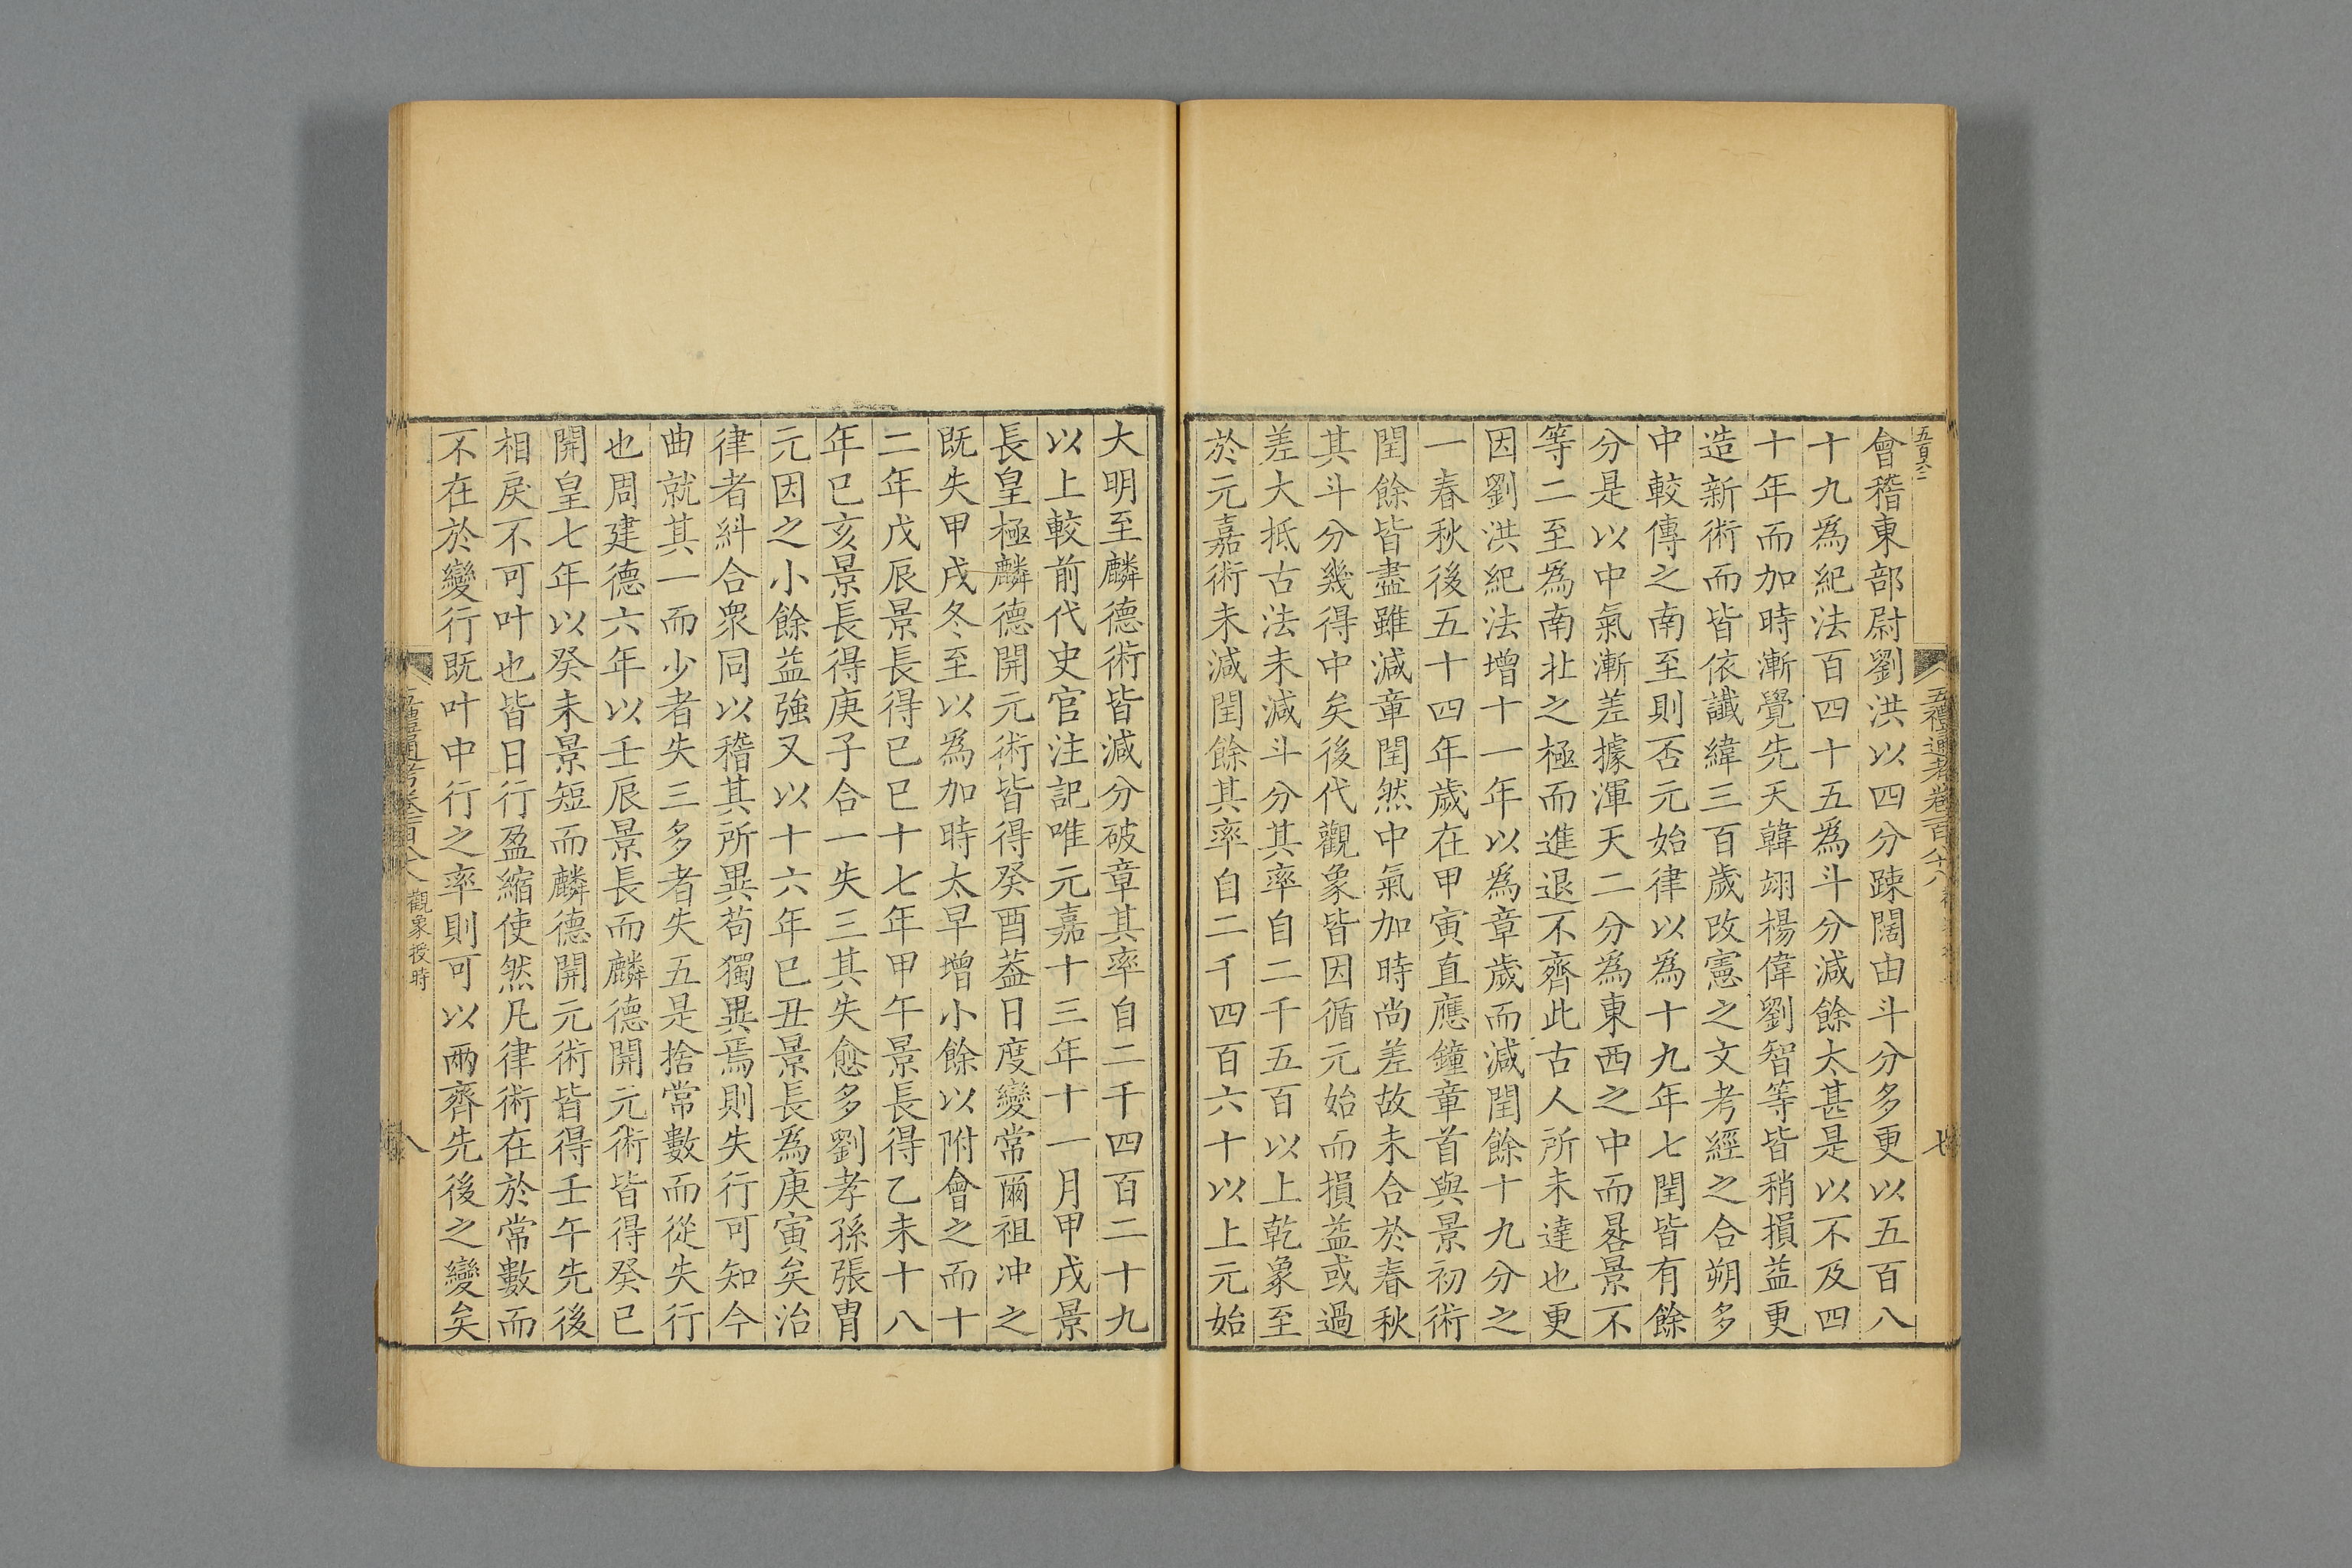 五百六二
五禮通考卷一百八十八
七
會稽東部尉劉洪以四分疎闊由斗分多更以五百八
十九爲紀法百四十五爲斗分減餘太甚是以不及四
十年而加時漸覺先天韓翊楊偉劉智等皆稍損益更
造新術而皆依讖緯三百歲改憲之文考經之合朔多
中較傳之南至則否元始律以爲十九年七閏皆有餘
分是以中氣漸差據渾天二分爲東西之中而晷景不
等二至爲南北之極而進退不齊此古人所未達也更
因劉洪紀法增十一年以爲章歲而減閏餘十九分之
一春秋後五十四年歲在甲寅直應鐘章首與景初術
閏餘皆盡雖減章閏然中氣加時尚差故未合於春秋
其斗分幾得中矣後代觀象皆因循元始而損益或過
差大抵古法未減斗分其率自二千五百以上乾象至
於元嘉術未減閏餘其率自二千四百六十以上元始
大明至麟德術皆減分破章其率自二千四百二十九
以上較前代史官注記唯元嘉十三年十一月甲戌景
長皇極麟德開元術皆得癸酉蓋日度變常爾祖冲之
既失甲戌冬至以爲加時太早增小餘以附會之而十
二年戊辰景長得己巳十七年甲午景長得乙未十八
年己亥景長得庚子合一失三其失愈多劉孝孫張冑
元因之小餘益強又以十六年己丑景長爲庚寅矣治
律者糾合衆同以稽其所異苟獨異焉則失行可知今
曲就其一而少者失三多者失五是捨常數而從失行
也周建德六年以壬辰景長而麟德開元術皆得癸巳
開皇七年以癸未景短而麟德開元術皆得壬午先後
相戾不可叶也皆日行盈縮使然凡律術在於常數而
不在於變行既叶中行之率則可以兩齊先後之變矣
五禮通考卷一百八十八 觀象授時
八